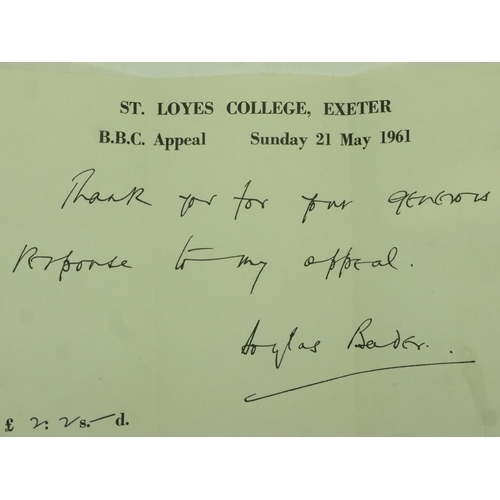 ST. LOYES COLLEGE, EXETER
B.B.C. Appeal Sunday 21 May 1961
Thank you for your generous
response to my appeal.
Douglas Bader.
£ 2: 2s. — d.